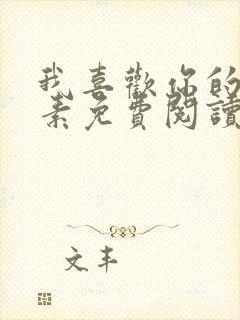 我喜歡你的
素免費閱讀
文丰